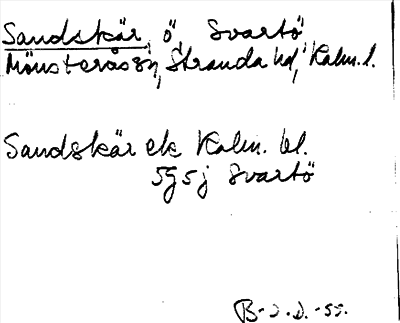 Sandskär, ö, Svartö
Mönsterås sn, Stranda hd, Kalm. l.
Sandskär ek Kalm. bl.
5g5j Svartö
B-J.D.-55.